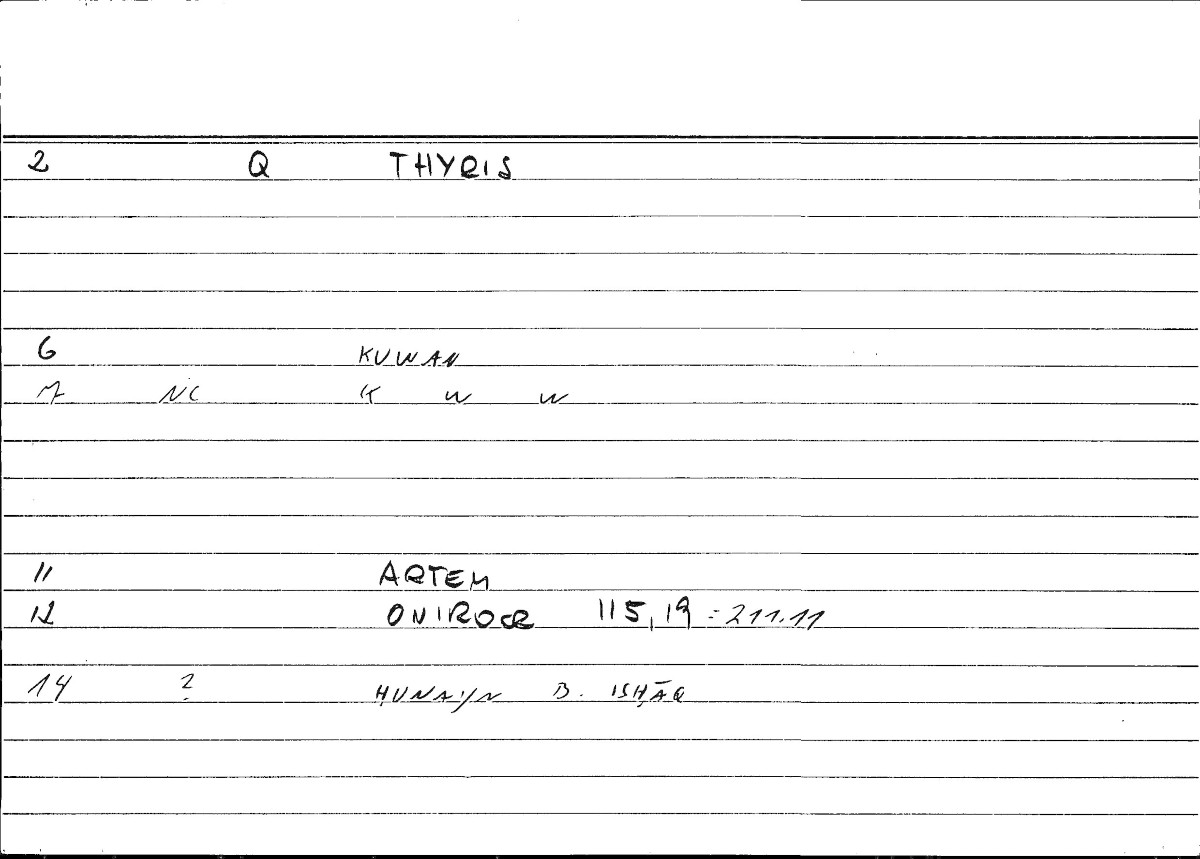 2 Q THYRIS
6 KUWAN
7 NC K W W
11 ARTEM
12 ONIROCR 115,19 = 211.11
14 ? ḤUNAYN B. ISḤĀQ